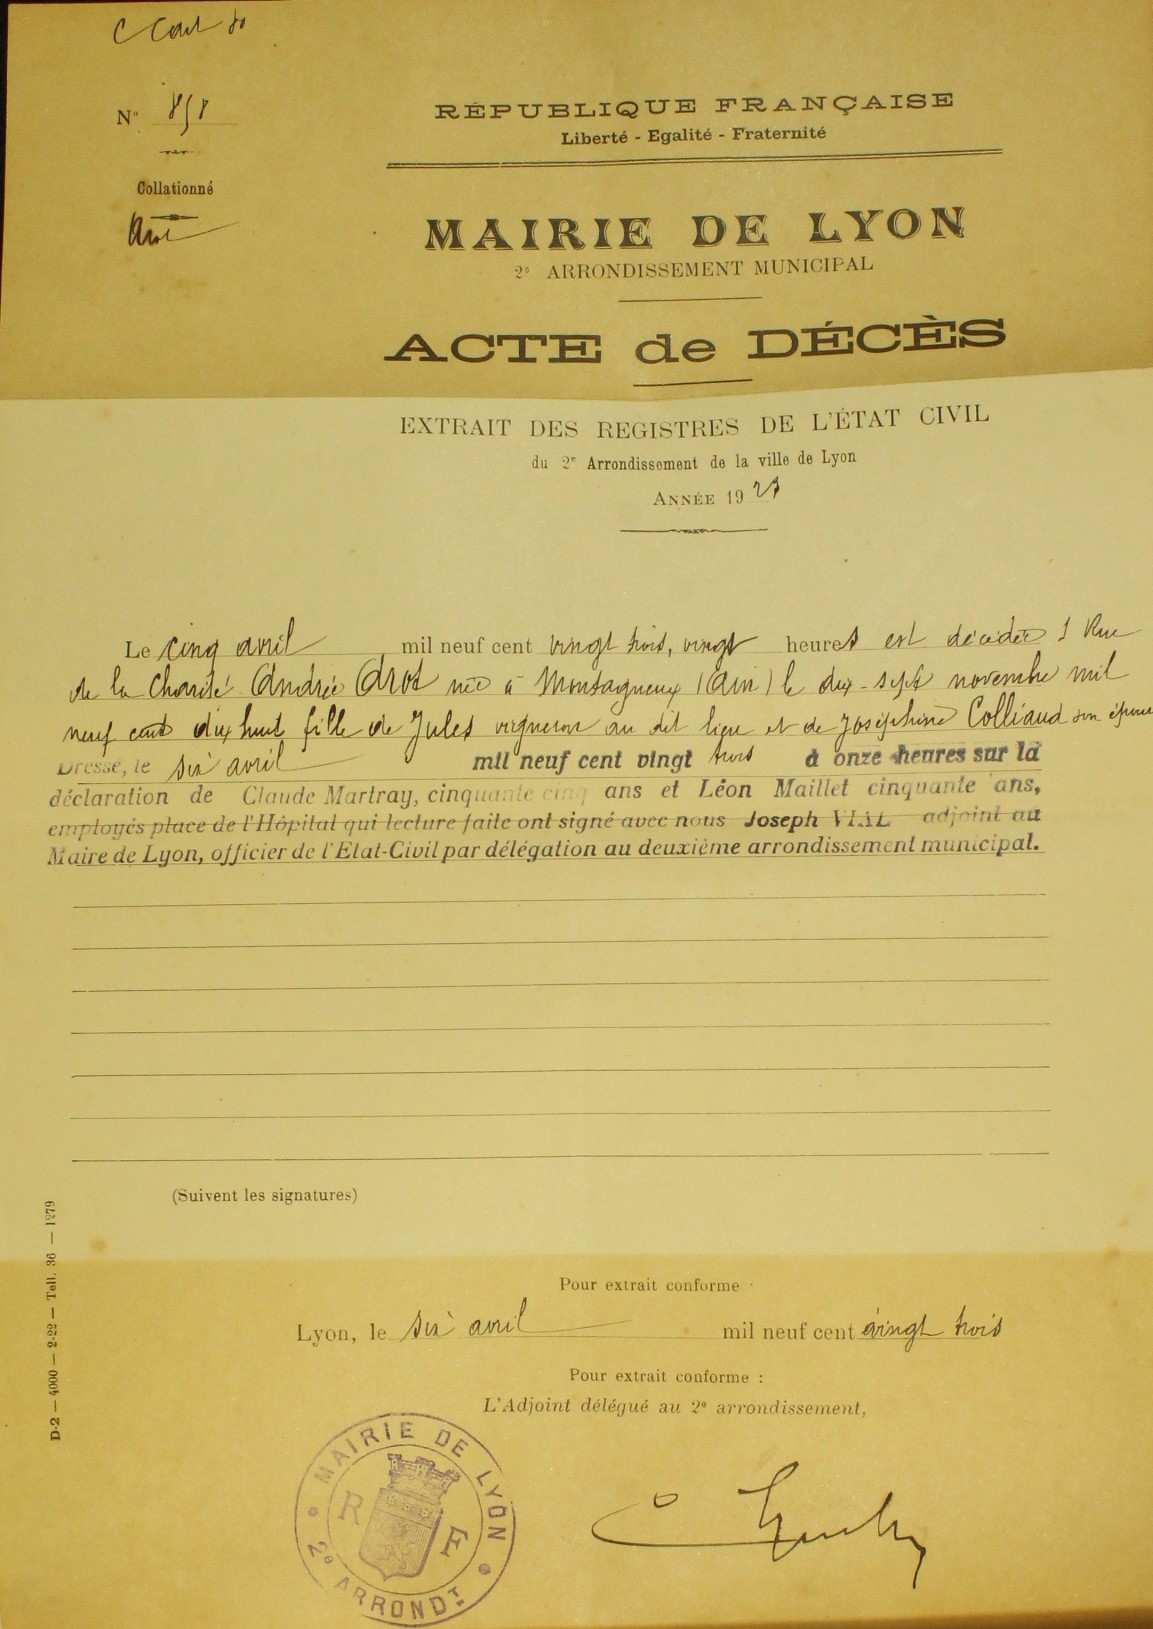 N° 858
Collationné
RÉPUBLIQUE FRANÇAISE
Liberté - Egalité - Fraternité
MAIRIE DE LYON
2e ARRONDISSEMENT MUNICIPAL
ACTE de DÉCÈS
EXTRAIT DES REGISTRES DE L'ÉTAT CIVIL
du 2e Arrondissement de la ville de Lyon
ANNÉE 1923
Le cinq avril mil neuf cent vingt trois, vingt heures est décédée 1 Rue
de la Charité Andrée Drot née à Montagneux (Ain) le dix-sept novembre mil
neuf cent dix huit fille de Jules vigneron au dit lieu et de Joséphine Colliaud son épouse
Dressé, le six avril mil neuf cent vingt trois à onze heures sur la
déclaration de Claude Martray, cinquante cinq ans et Léon Maillet cinquante ans,
employés place de l'Hôpital qui lecture faite ont signé avec nous Joseph VIAL adjoint au
Maire de Lyon, officier de l'Etat-Civil par délégation au deuxième arrondissement municipal.
(Suivent les signatures)
D-2 — 4000 — 2-22 — Tell. 36 — 1279
Pour extrait conforme
Lyon, le six avril mil neuf cent vingt trois
Pour extrait conforme :
L'Adjoint délégué au 2e arrondissement,
MAIRIE DE LYON
R F
2e ARRONDT